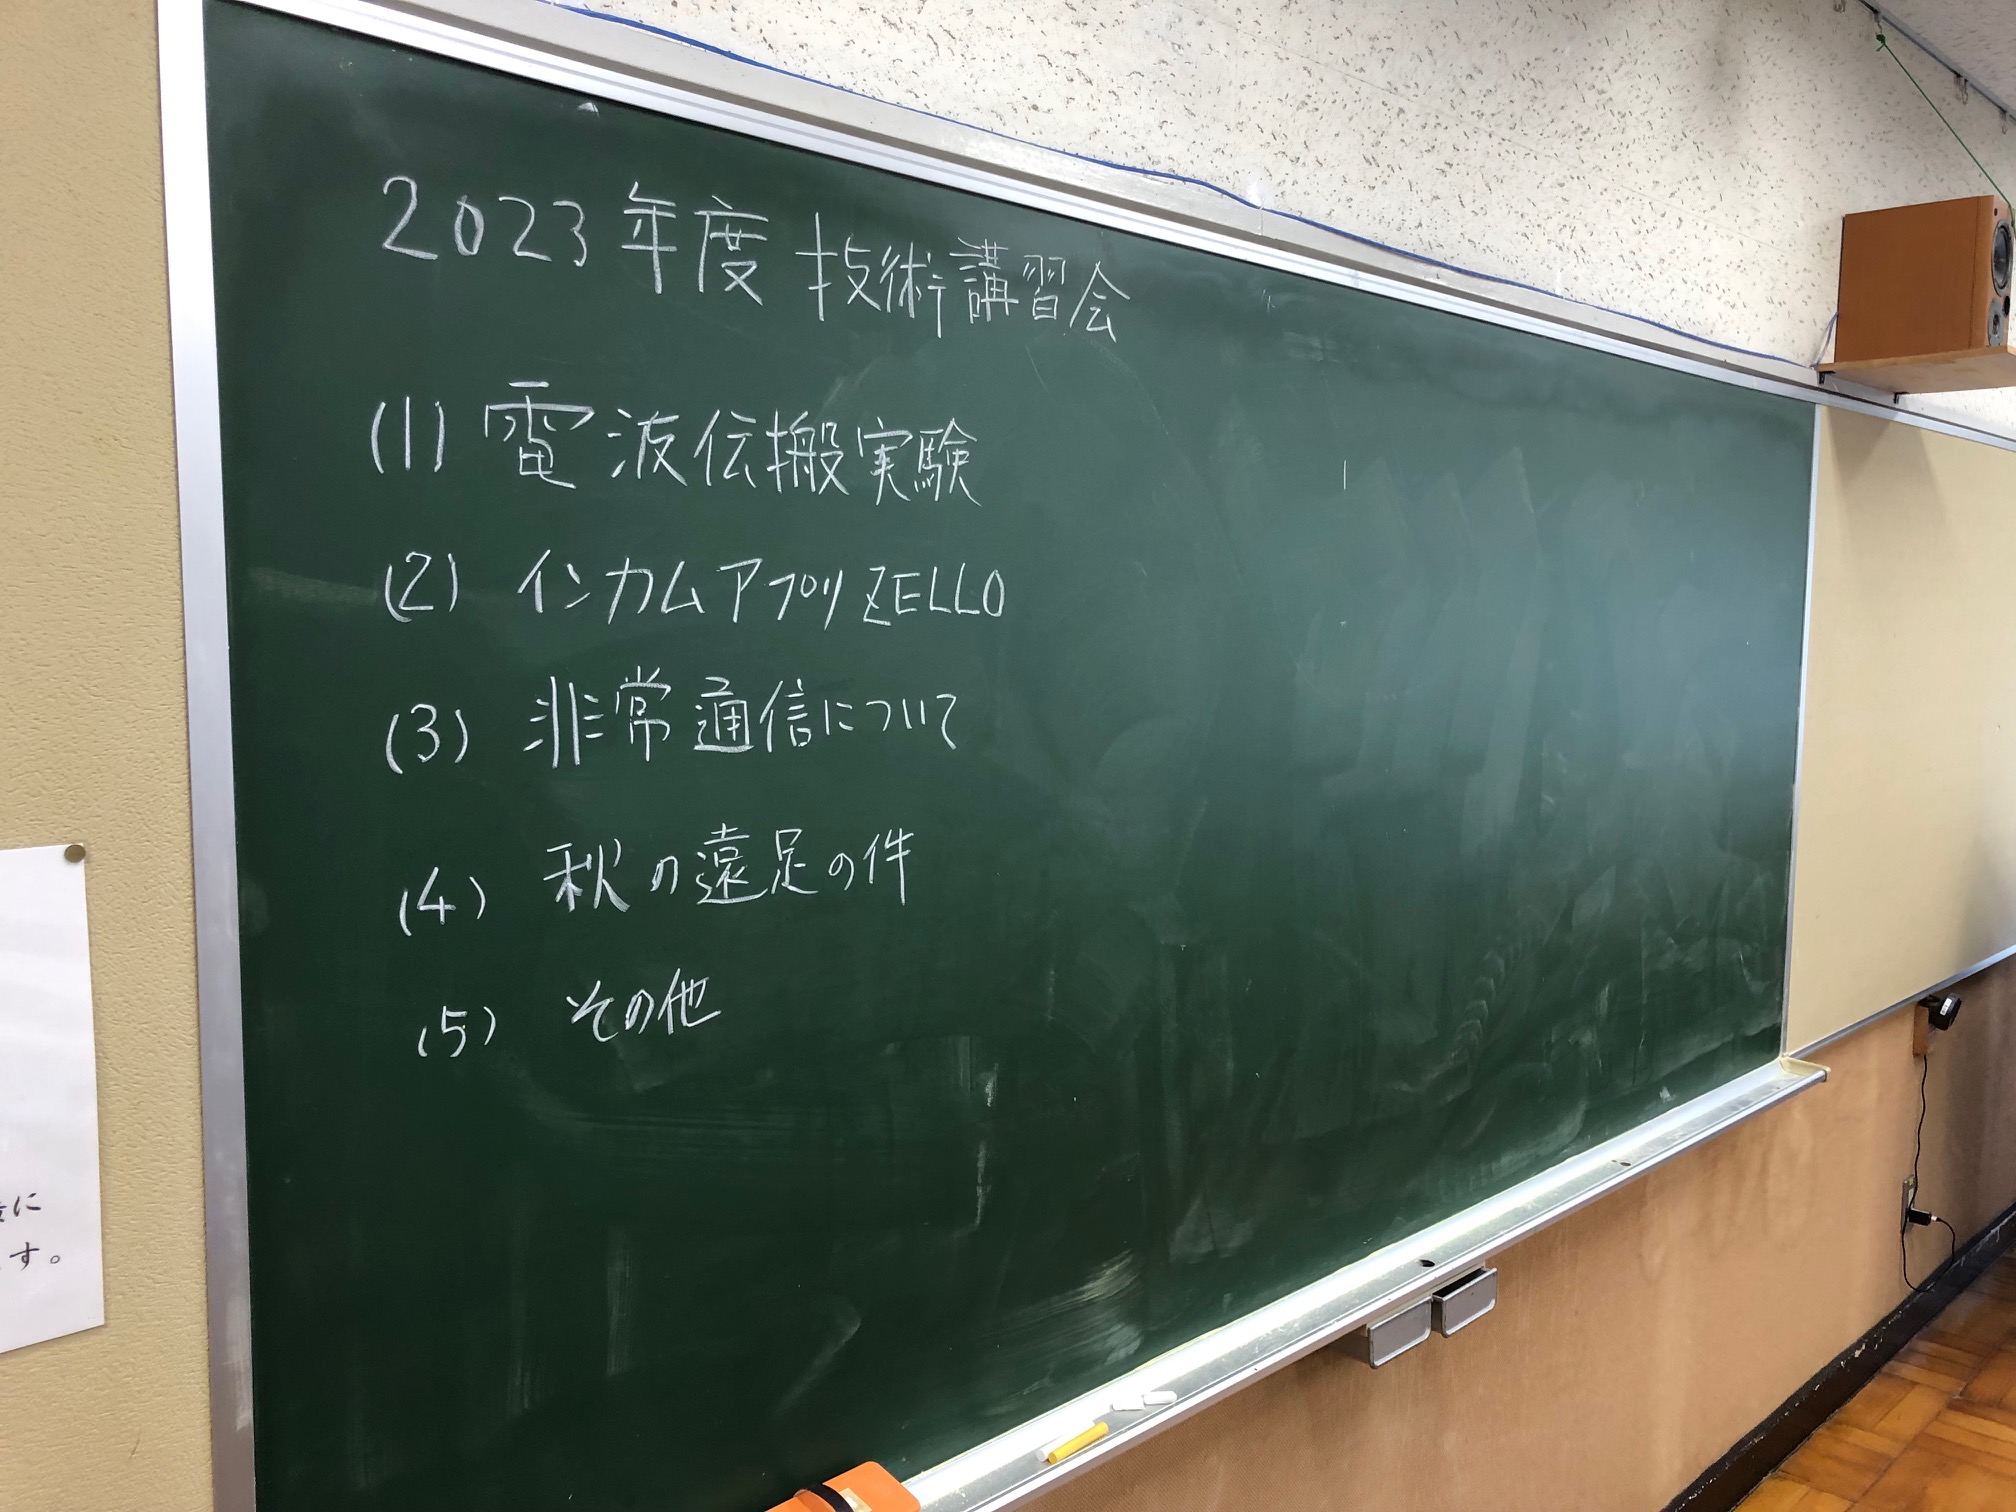 2023年度 技術講習会
(1) 電波伝搬実験
(2) インカムアプリZELLO
(3) 非常通信について
(4) 秋の遠足の件
(5) その他
に
す。